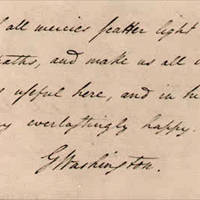 all mercies scatter light
paths, and make us all
useful here, and in
everlastingly happy.
GWashington.